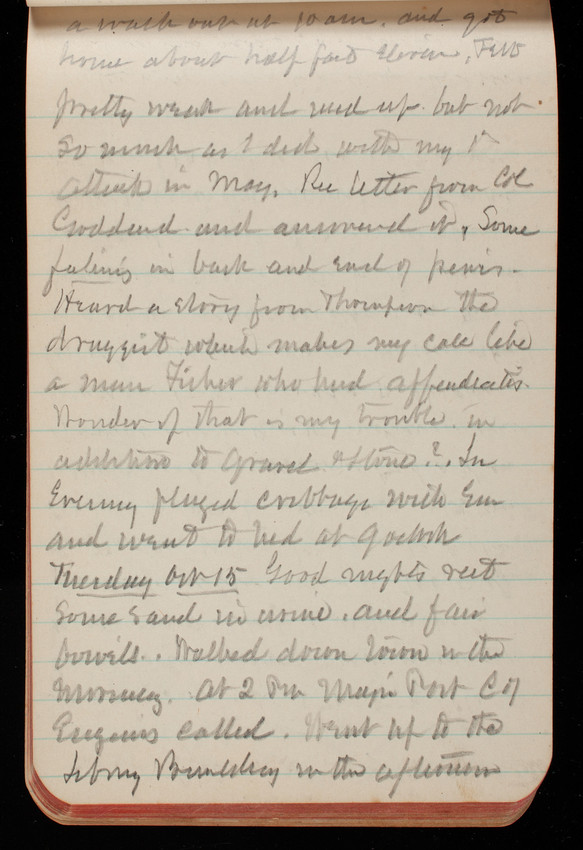 a walk out at 10 am. and got
home about half past Eleven, Felt
pretty weak and used up but not
so much as I did with my 1st
attack in May. Rec letter from Col
Goddard and answered it, Some
feeling in back and end of penis.
Heard a story from Thompson the
druggist which makes my case like
a man Fisher who had appendicitis.
Wonder if that is my trouble in
addition to gravel & stone?. In
Evening played cribbage with Em
and went to bed at 9 oclock
Tuesday Oct 15 Good nights rest
Some sand in urine. and fair
bowels.. Walked down town in the
Morning. At 2 Pm Majr Post C of
Engineers called. Went up to the
Library Building in the afternoon